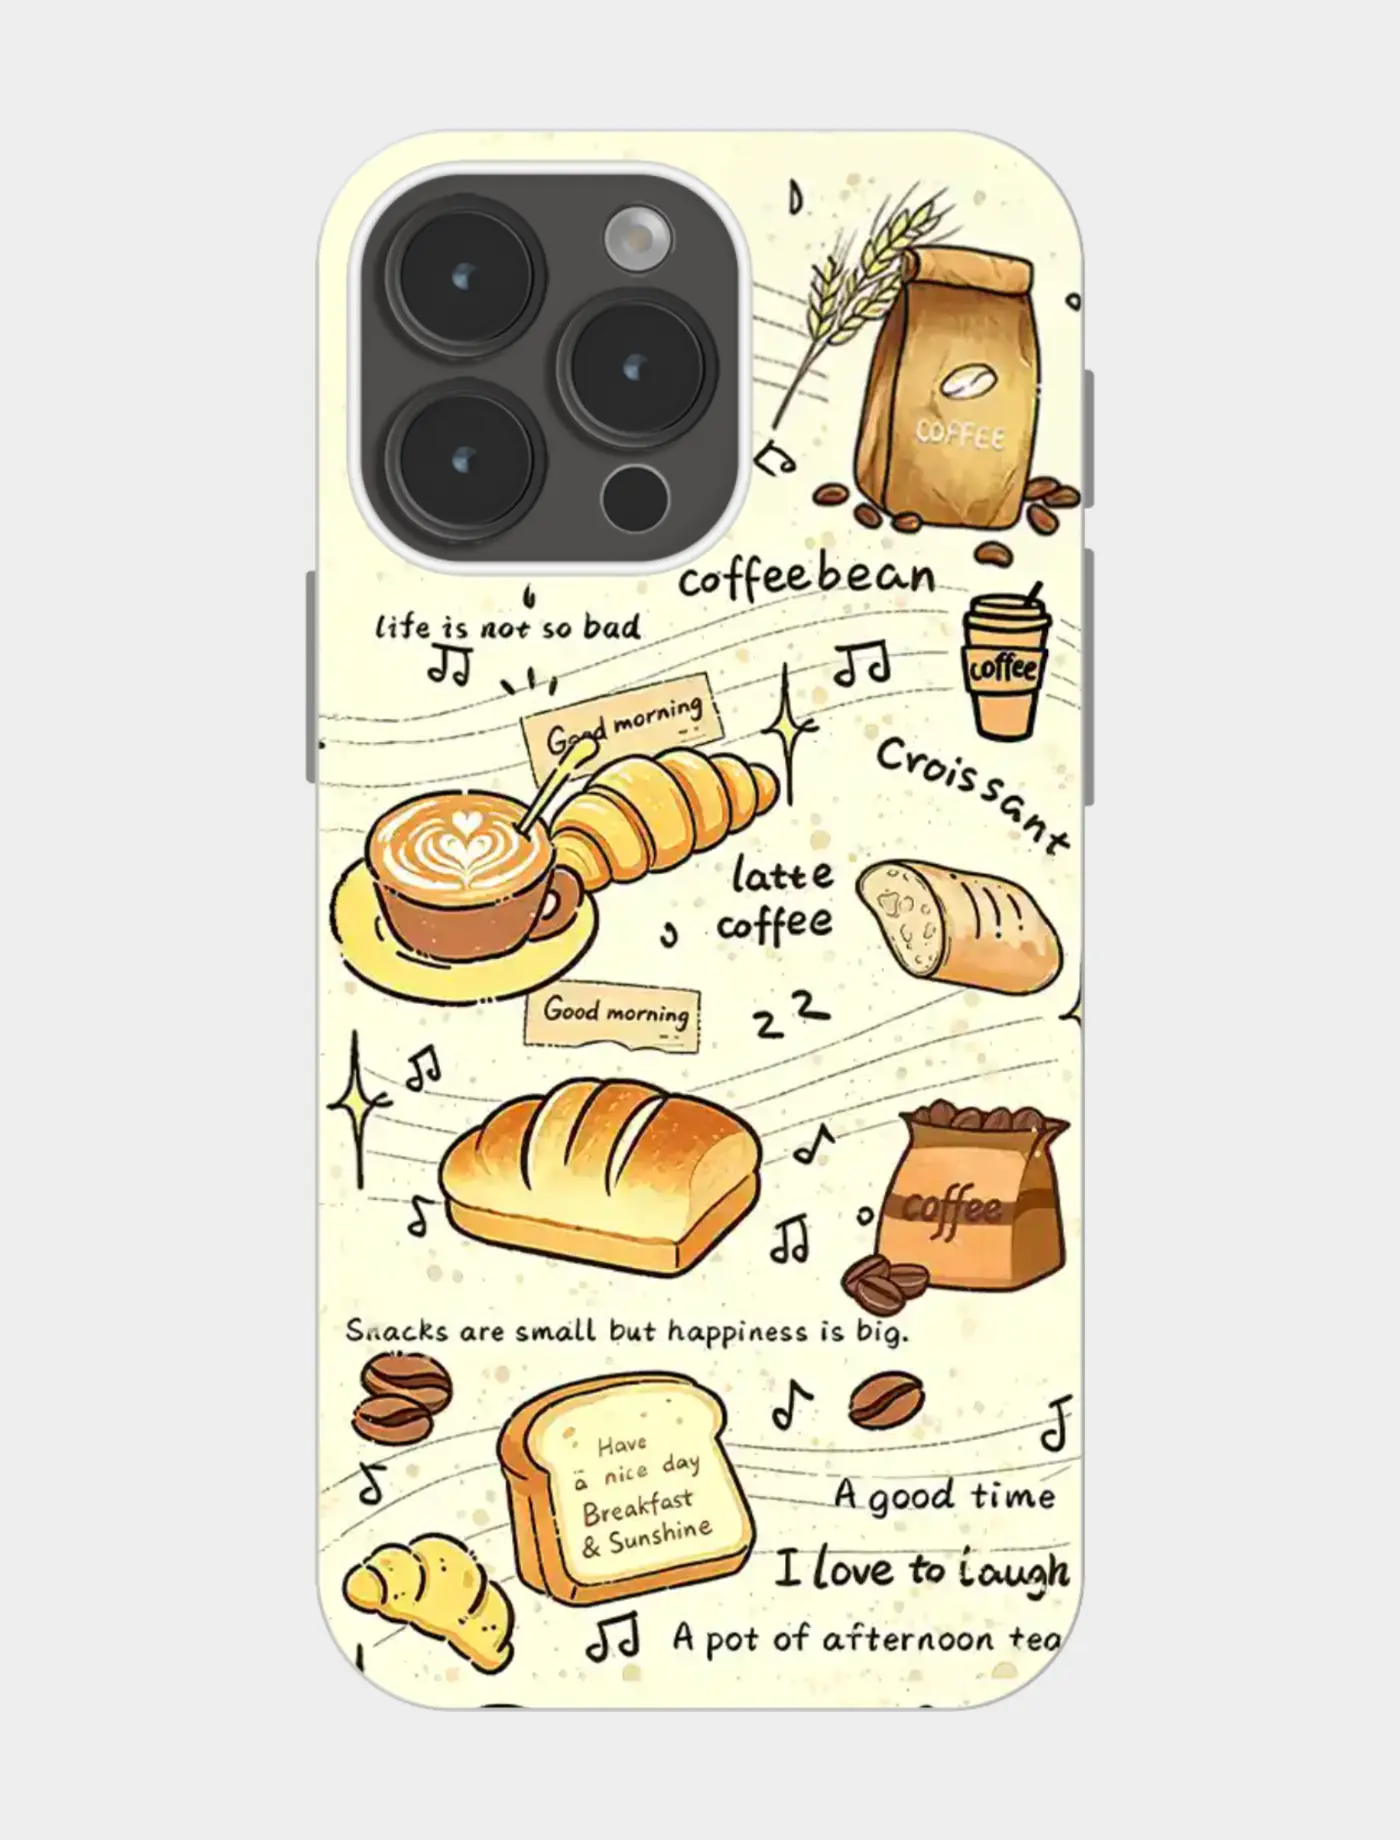 COFFEE
coffeebean
life is not so bad
coffee
Good morning
Croissant
latte
coffee
Good morning
coffee
Snacks are small but happiness is big.
Have
a nice day
Breakfast
& Sunshine
A good time
I love to laugh
A pot of afternoon tea